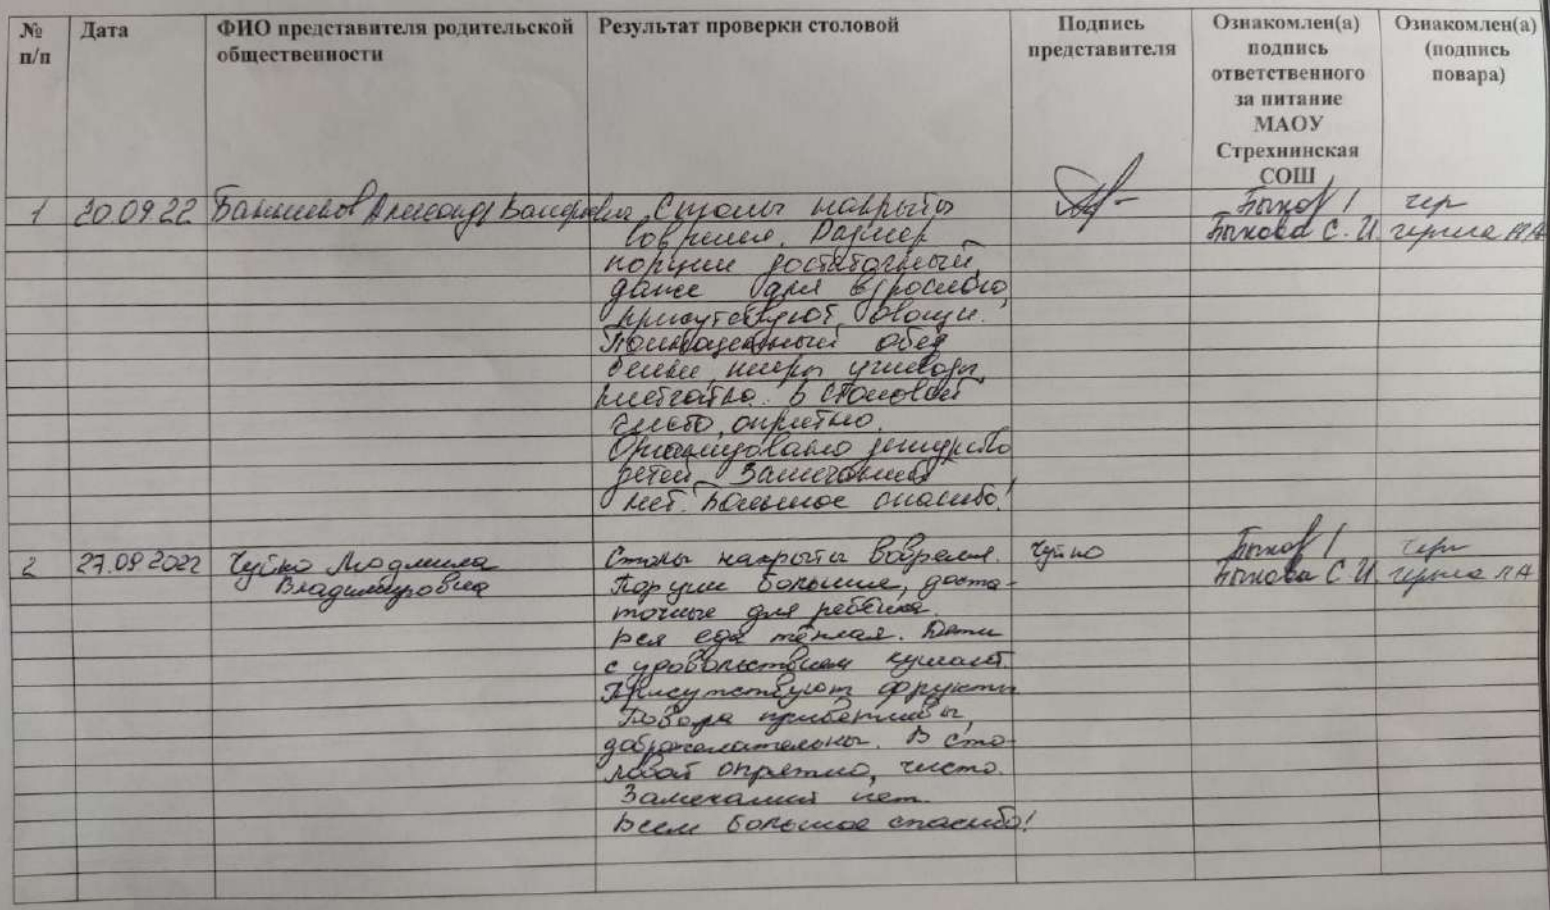 № п/п
Дата
ФИО представителя родительской общественности
Результат проверки столовой
Подпись представителя
Ознакомлен(а) подпись ответственного за питание МАОУ Стрехнинская СОШ
Ознакомлен(а) (подпись повара)
1 20.09.22 Банников Александр
Столы накрыты
вовремя. Размер
порции достаточный,
даже для взрослого,
присутствуют овощи.
Полноценный обед
белки, жиры, углеводы,
клетчатка. В столовой
чисто, опрятно.
Организовано дежурство
детей. Замечаний
нет. Большое спасибо!
Быкова С. И.
2 27.09 2022 Чуйко Людмила
Владимировна
Столы накрыты вовремя.
Порции большие, доста-
точные для ребёнка.
Вся еда тёплая. Дети
с удовольствием кушают.
Присутствуют фрукты
Повара приветливы,
доброжелательны. В сто-
ловой опрятно, чисто.
Замечаний нет.
Всем большое спасибо!
Чуйко
Быкова С. И.